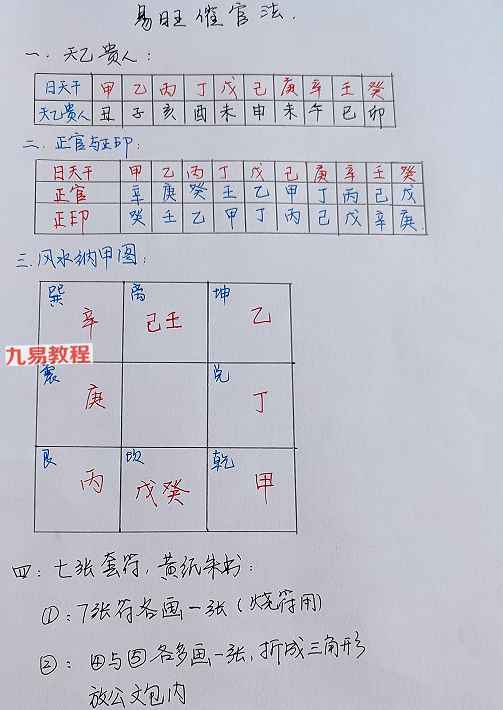 易旺催官法.
一.天乙贵人:
日天干 甲 乙 丙 丁 戊 己 庚 辛 壬 癸
天乙贵人 丑 子 亥 酉 未 申 未 午 巳 卯
二.正官与正印:
日天干 甲 乙 丙 丁 戊 己 庚 辛 壬 癸
正官 辛 庚 癸 壬 乙 甲 丁 丙 己 戊
正印 癸 壬 乙 甲 丁 丙 己 戊 辛 庚
三.风水纳甲图:
巽 离 坤
辛 己壬 乙
九易教程
震 兑
庚 丁
艮 坎 乾
丙 戊癸 甲
四:七张套符,黄纸朱书:
①:7张符各画一张(烧符用)
②:④与⑤各多画一张,折成三角形
放公文包内